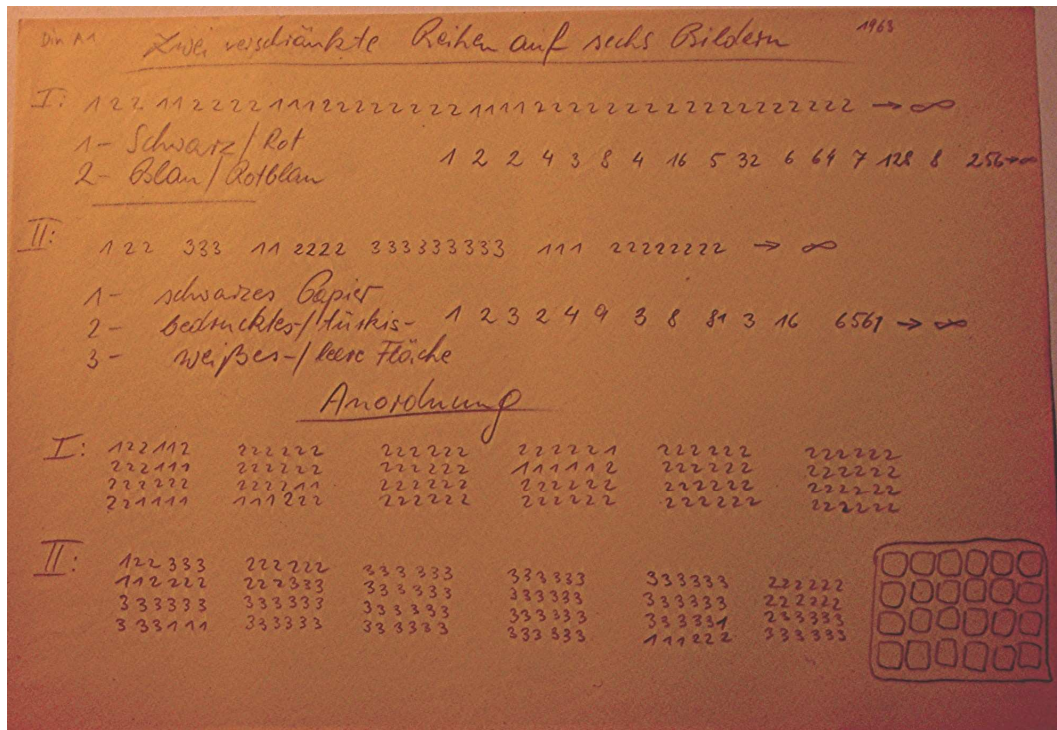 Din A1
Zwei verschränkte Reihen auf sechs Bildern
1963
I: 122 1122221112222222211112222222222222222 → ∞
1- Schwarz/Rot
2- Blau/Rotblau
1 2 2 4 3 8 4 16 5 32 6 64 7 128 8 256→∞
II: 122 333 11 2222 333333333 111 22222222 → ∞
1- schwarzes Papier
2- bedrucktes-/türkis-
3- weißes-/leere Fläche
1 2 3 2 4 9 3 8 81 3 16 6561 → ∞
Anordnung
I: 122112 222222 222222 222221 222222 222222
222111 222222 222222 111112 222222 222222
222222 222211 222222 222222 222222 222222
221111 111222 222222 222222 222222 222222
II: 122333 222222 333333 333333 333333 222222
112222 222333 333333 333333 333333 222222
333333 333333 333333 333333 333331 233333
333111 333333 333333 333333 111222 333333